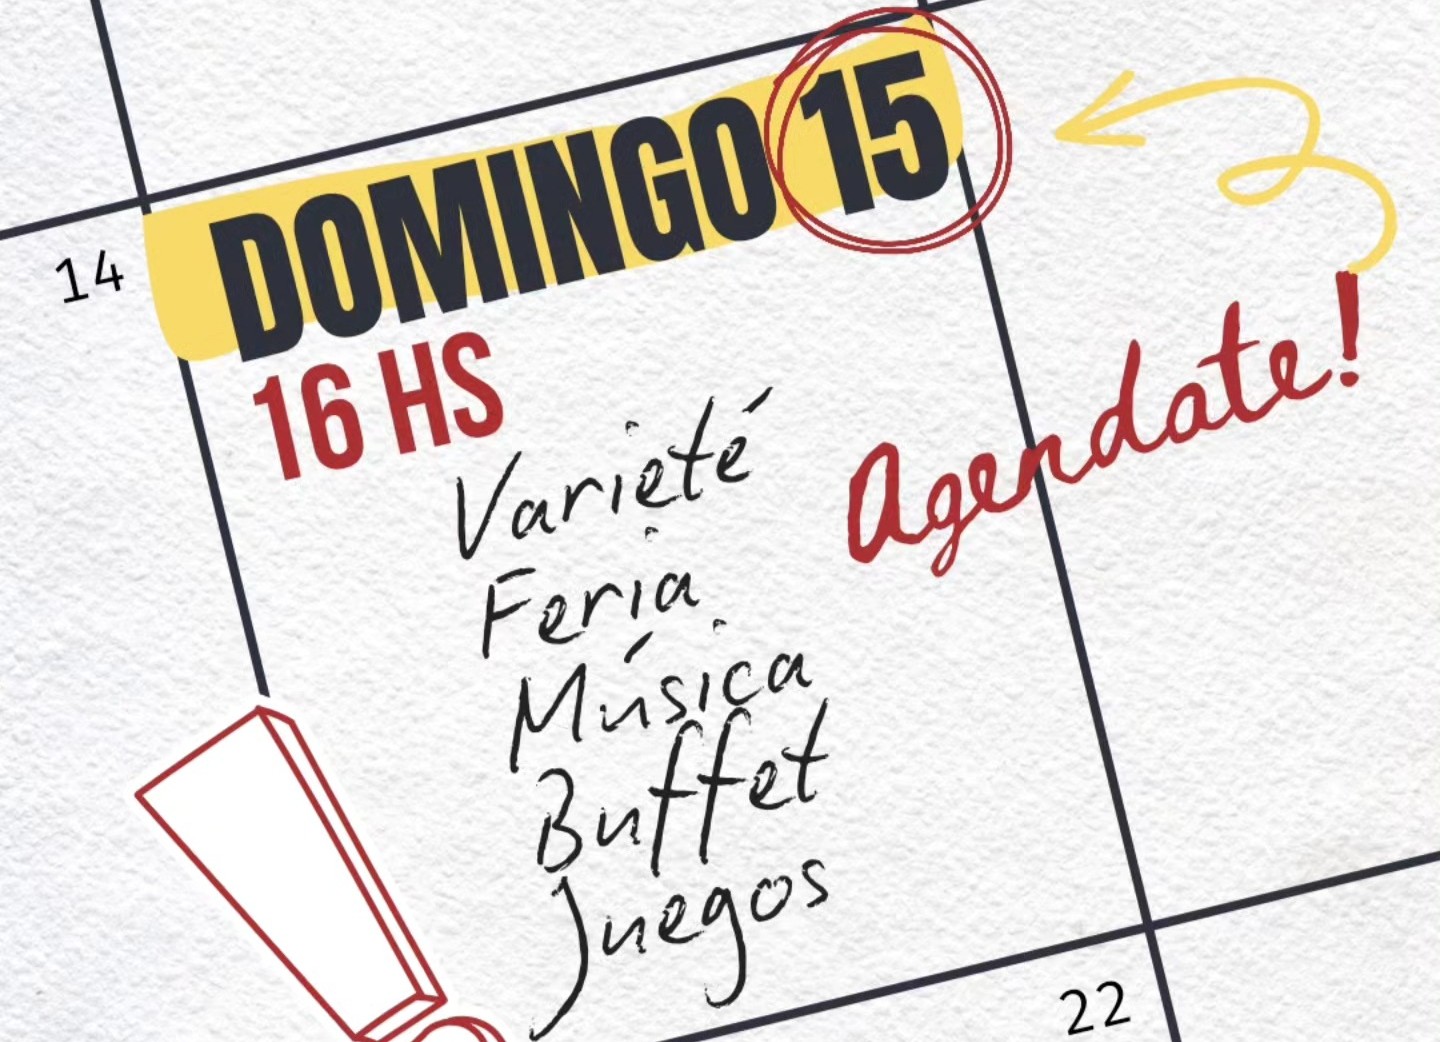 DOMINGO 15
14
16 HS
Agendate!
Varieté
Feria
Música
Buffet
Juegos
22